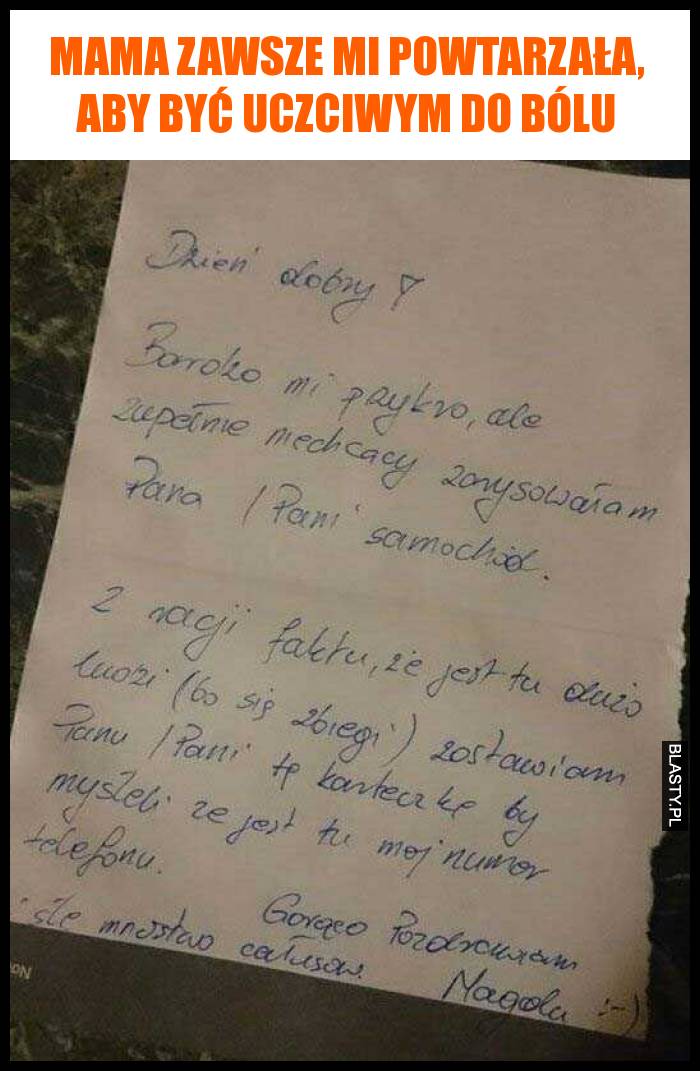 MAMA ZAWSZE MI POWTARZAŁA,
ABY BYĆ UCZCIWYM DO BÓLU
Dzień dobry!
Bardzo mi przykro, ale
zupełnie niechcący zarysowałam
Pana / Pani samochód.
Z racji faktu, że jest tu dużo
ludzi (bo się zbiegli) zostawiam
Panu / Pani tę karteczkę by
myśleli że jest tu mój numer
telefonu.
Gorąco Pozdrawiam
i ślę mnóstwo całusów.
Magda :-)
BLASTY.PL